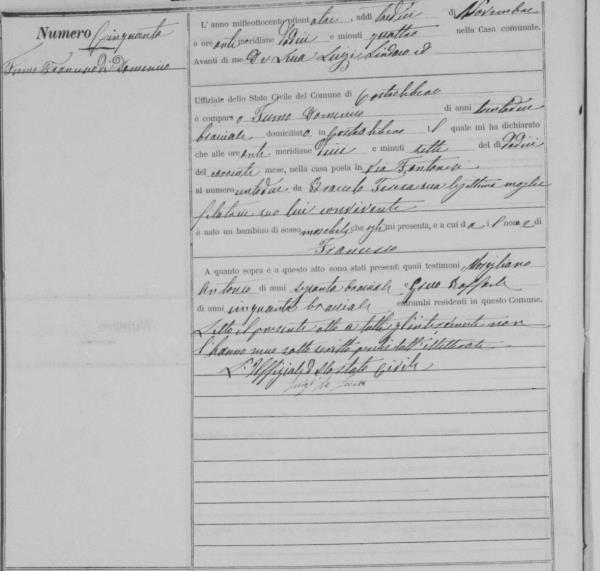 Numero Cinquanta
Fumo Francesco di Domenico
L'anno milleottocento ottant addì di Novembre
a ore anti meridiane dodici e minuti quattro nella Casa comunale.
Avanti di me De Luca Luigi Sindaco ed
Uffiziale dello Stato Civile del Comune di
è comparso Fumo Domenico di anni trentadue
bracciale domiciliato in quale mi ha dichiarato
che alle ore anti meridiane dieci e minuti sette del dì dodici
del corrente mese, nella casa posta in via Fontana
al numero da Teresa sua legittima moglie
filatrice seco lui convivente
è nato un bambino di sesso maschile che egli mi presenta, e a cui dà il nome di
Francesco
A quanto sopra e a questo atto sono stati presenti quali testimoni
Antonio di anni sessanta bracciale e Raffaele
di anni cinquanta bracciale entrambi residenti in questo Comune.
Letto il presente atto a tutti gl'intervenuti non
l'hanno meco sottoscritto perché illetterati
L'Uffiziale dello Stato Civile
Luigi De Luca